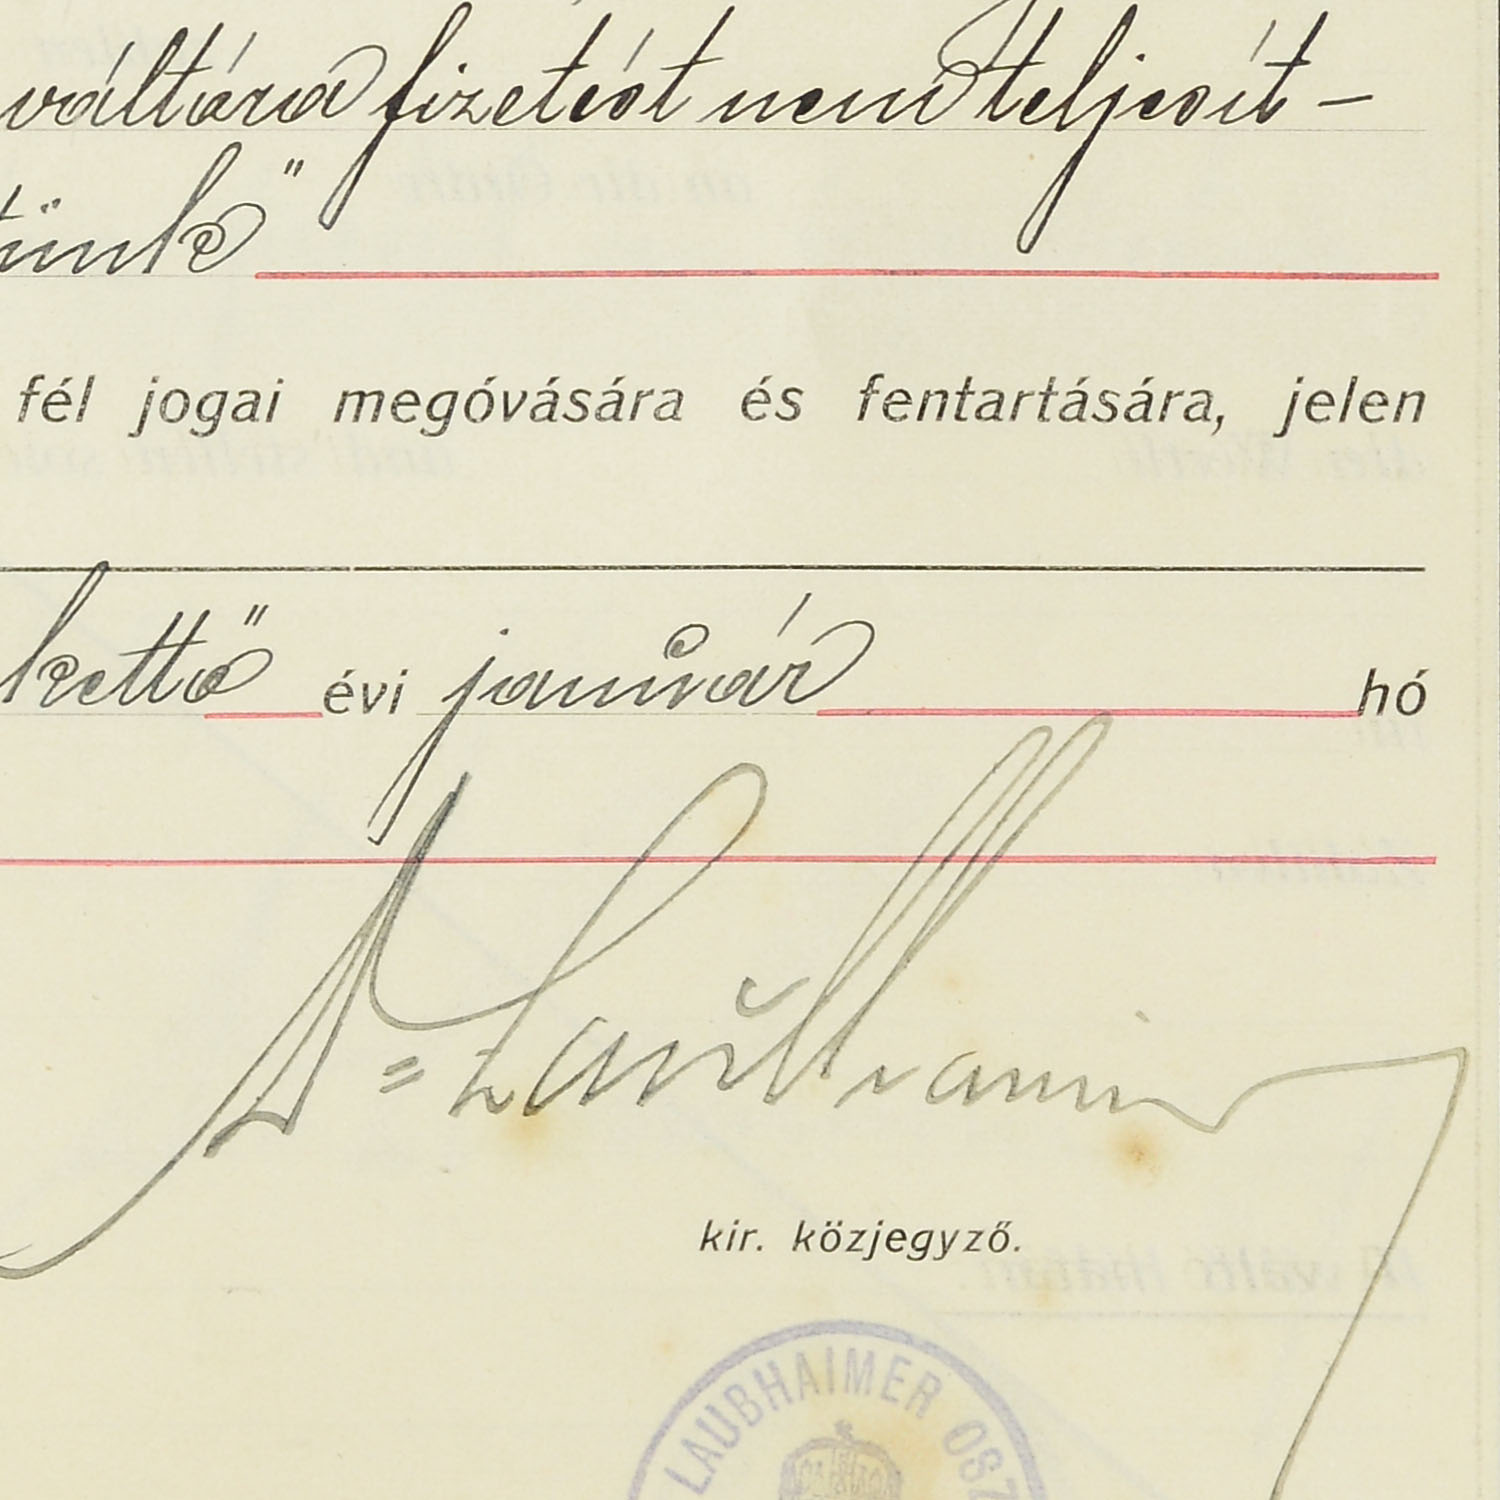 váltóra fizetést nem teljesít –
tünk"
fél jogai megóvására és fentartására, jelen
kettő évi január hó
Dr Laubhaimer
kir. közjegyző.
LAUBHAIMER OSZ